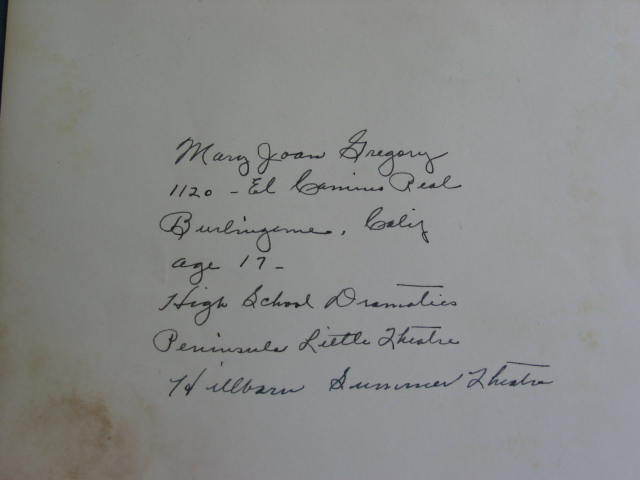 Mary Joan Gregory
1120 - El Camino Real
Burlingame, Calif
age 17 -
High School Dramatics
Peninsula Little Theatre
Hillbarn Summer Theatre